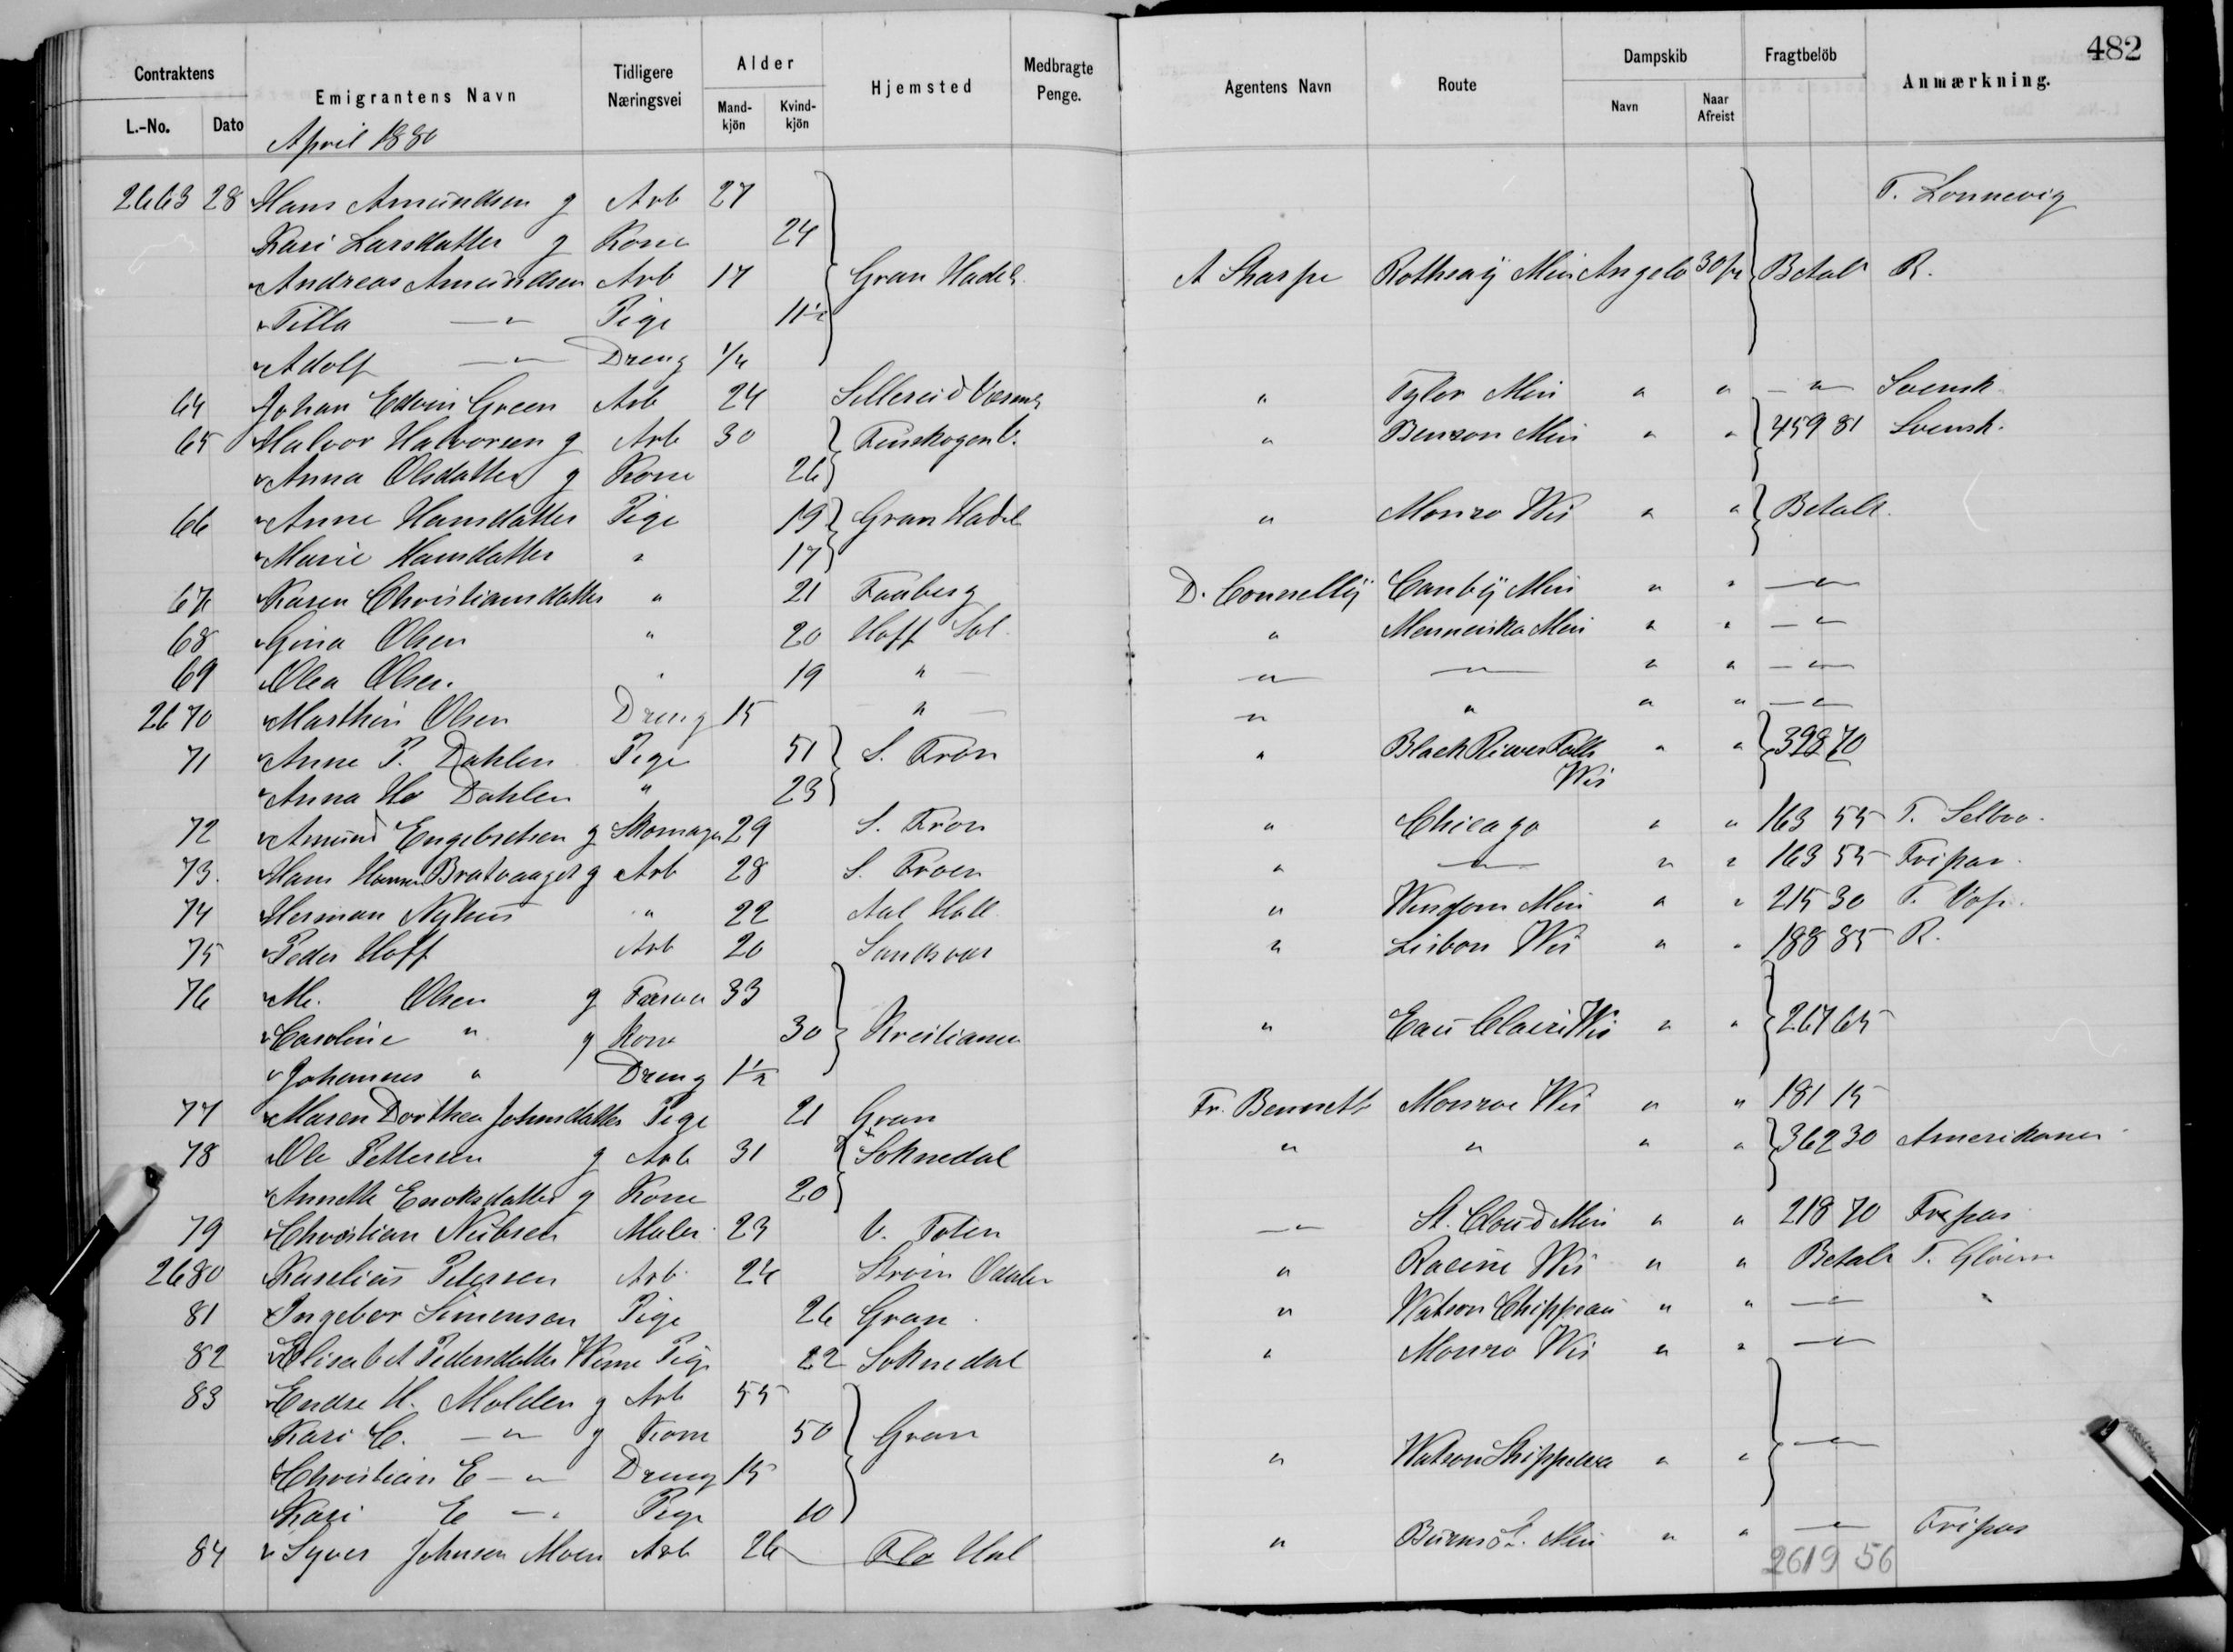 482
Contraktens
L.-No. Dato
Emigrantens Navn
Tidligere Næringsvei
Alder
Mand-kjön Kvind-kjön
Hjemsted
Medbragte Penge.
Agentens Navn
Route
Dampskib
Navn Naar Afreist
Fragtbelöb
Anmærkning.
April 1880
2663 28 Hans Amundsen g Arb 27 T. Lonnevig
Kari Larsdatter g Kone 24
Andreas Amundsen Arb 17 Gran Hadel. A Sharpe Rothsay Min Angelo 30/4 Betalt R.
Tilla — " — Pige 11½
Adolf — " — Dreng
64 Johan Edvin Green Arb 24 " Tyler Min " " — " — Svensk
65 Halvor Halvorsen g Arb 30 Finskogen V. " Benson Min " " 459 81 Svensk.
Anna Olsdatter g Kone 26
66 Anne Hansdatter Pige 19 Gran Hadel " Monro Wis " " Betalt.
Marie Hansdatter " 17
67 Karen Christiansdatter " 21 Faaberg D. Connelly Canby Min " " — " —
68 Gina Olsen " 20 Hoff Sol. " Min " " — " —
69 Olea Olsen. " 19 " — — " — — " — " " — " —
2670 Marthin Olsen Dreng 15 — " — " " " " — " —
71 Anne P. Dahlen Pige 51 S. Fron " Black River Falls Wis " " 398 70
Anna Ho Dahlen " 23
72 Amund Engebretsen g Skomager 29 S. Fron " Chicago " " 163 55 T. Selboe.
73. Hans Hansen Bratvaaget g Arb 28 S. Froen " — " — " " 163 55 Fripas.
74 Herman Nyhus " 22 Aal Hall " Windom Min " " 215 30 T. Vop.
75 Peder Hoff Arb 20 Sandsvær " Lisbon Wis " " 188 85 R.
76 M. Olsen g Farmer 33
Caroline " g Kone 30 Kristiania " Eau Claire Wis " " 267 65
Johannes " Dreng 1½
77 Maren Dorthea Johnsdatter Pige 21 Gran Fr. Bennett Monroe Wis " " 181 15
78 Ole Pettersen g Arb 31 Soknedal " " " " 362 30 Amerikaner
Annette Enoksdatter g Kone 20
79 Christian Nielsen Maler 23 V. Toten — " — St. Cloud Min " " 218 70 Fripas
2680 Karelius Petersen Arb. 24 Strøm Odalen " Racine Wis " " Betalt
81 Ingebor Simensen Pige 26 Gran " Watson Chippeau " " — " —
82 Elisabet Pedersdatter Pige 22 Soknedal " Monro Wis " " — " —
83 Endre H. Molden g Arb 55
Kari C. — " — g Kone 50 Gran
Christian E — " — Dreng 15 " Watson Shippewa " " — " —
Kari E — " Pige 10
84 Syver Johnsen Moen Arb 26 Hal " Min " " — " — Fripas
2619 56